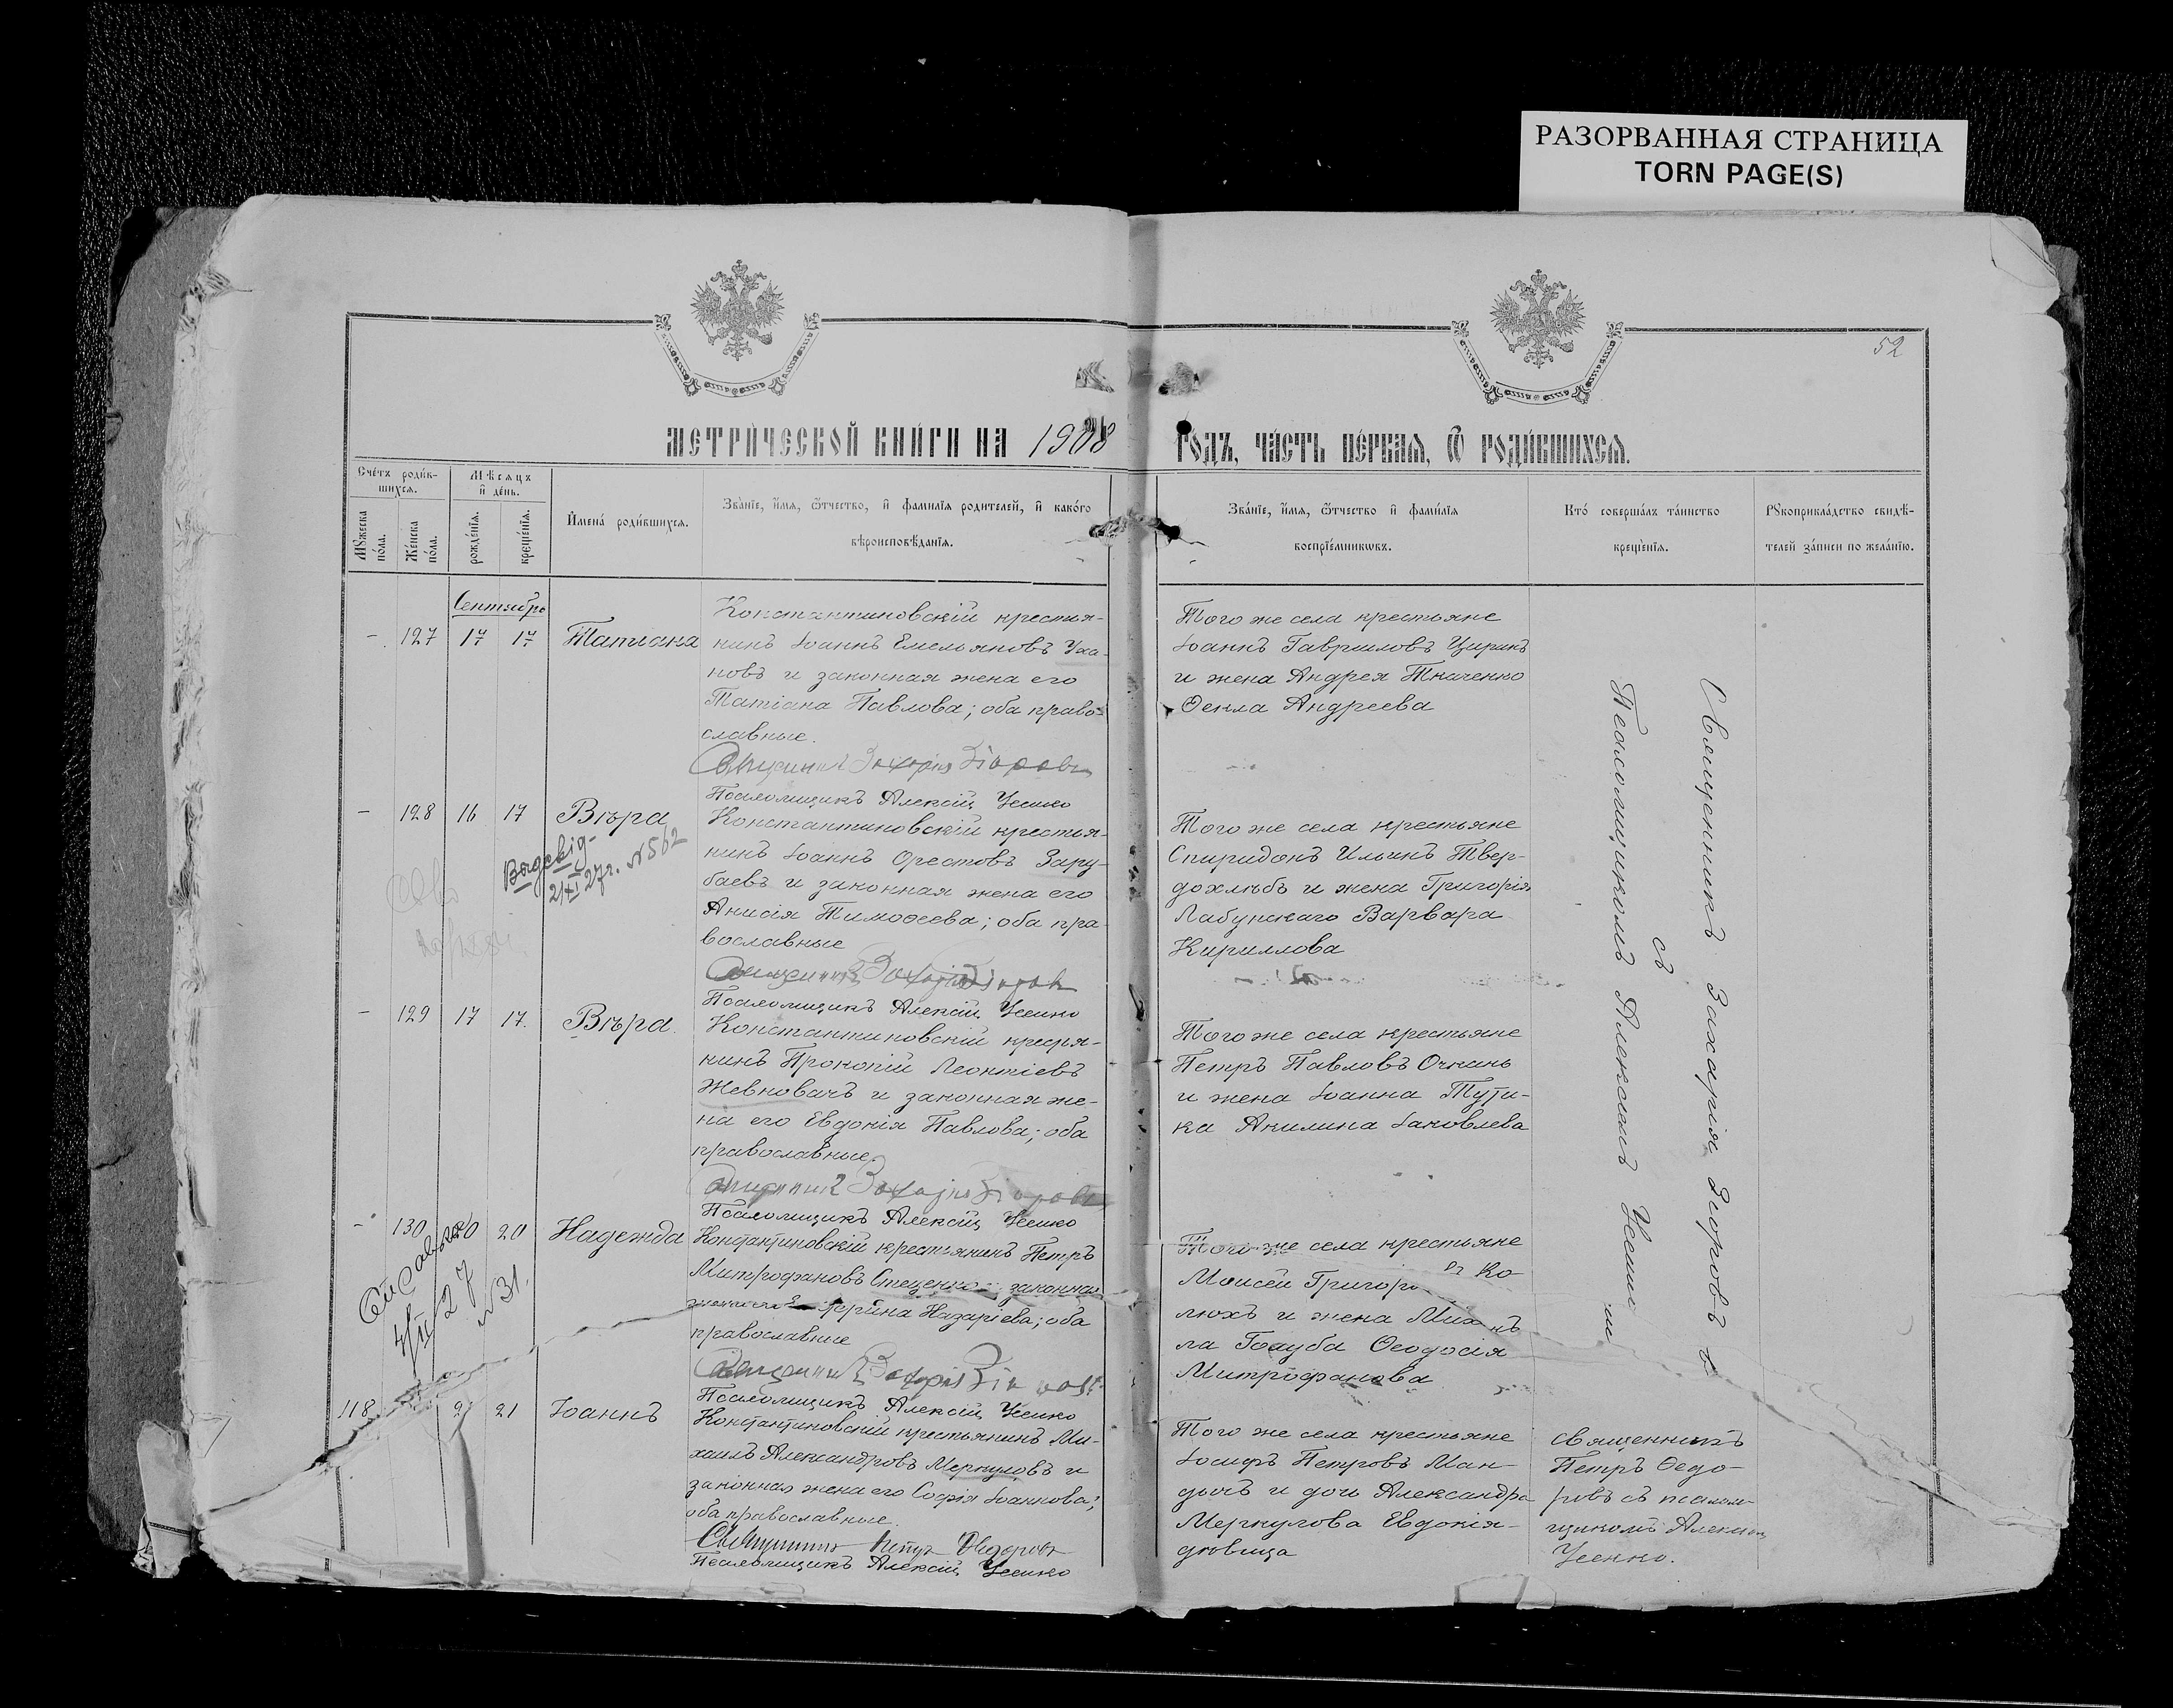 РАЗОРВАННАЯ СТРАНИЦА
TORN PAGE(S)
52
МЕТРИ́ЧЕСКОЙ КНИ́ГИ НА 1908
ГОДЪ, ЧА́СТЬ ПЕ́РВАЯ, Ѿ РОДИ́ВШИХСЯ.
Сче́тъ роди́в-
шихся.
Мꙋжеска по́ла.
Же́нска по́ла.
Мѣ́сяцъ
и҆ де́нь.
рожде́нїя.
креще́нїя.
И҆мена̀ роди́вшихся.
Зва́нїе, и҆́мя, ѻ҆́тчество, и҆ фами́лїя роди́телей, и҆ како́го
вѣроисповѣ́данїя.
Зва́нїе, и҆́мя, ѻ҆́тчество и҆ фами́лїя
воспрїе́мникѡвъ.
Кто̀ соверша́лъ та́инство
креще́нїя.
Рꙋкоприкла́дство свидѣ́-
телей за́писи по жела́нїю.
Сентябрь
- 127 17 17 Татіана
Константиновскій крестья-
нинъ Іоаннъ Емельяновъ Уха-
новъ и законная жена его
Татіана Павлова; оба право-
славные.
Священникъ Захарія Згоровъ
Псаломщикъ Алексій Усенко
Того же села крестьяне
Іоаннъ Гавриловъ Цирикъ
и жена Андрея Ткаченко
Ѳекла Андреева
- 128 16 17 Вѣра
21/XI 27г. №562
Константиновскій крестья-
нинъ Іоаннъ Орестовъ Зару-
баевъ и законная жена его
Анисія Тимоѳеева; оба пра-
вославные
Священникъ Захарія Згоровъ
Псаломщикъ Алексій Усенко
Того же села крестьяне
Спиридонъ Ильинъ Твер-
дохлѣбъ и жена Григорія
Лабунскаго Варвара
Кириллова
- 129 17 17. Вѣра.
Константиновскій крестья-
нинъ Прокопій Леонтіевъ
Жевновачъ и законная же-
на его Евдокія Павлова; оба
православные.
Священникъ Захарія Згоровъ
Псаломщикъ Алексій Усенко
Того же села крестьяне
Петръ Павловъ Очкань
и жена Іоанна Тути-
ка Акилина Іаковлева
- 130 20 20 Надежда
27
№31.
Константиновскій крестьянинъ Петръ
Митрофановъ Стеценко и законная
Назаріева; оба
православные
Священникъ Захарія Згоровъ
Псаломщикъ Алексій Усенко
Того же села крестьяне
Моисей Григорьевъ Ко-
люхъ и жена Миха
ла Голуба Ѳеодосія
Митрофанова
Священникъ Захарія Згоровъ
съ
Псаломщикомъ Алексіемъ Усенко
118 21 21 Іоаннъ
Константиновскій крестьянинъ Ми-
хаилъ Александровъ Меркуловъ и
законная жена его Софія Іоаннова;
оба православные.
Священникъ Петръ Ѳедоровъ
Псаломщикъ Алексій Усенко
Того же села крестьяне
Іосифъ Петровъ Ман-
дычъ и дочь Александра
Меркулова Евдокія -
дѣвица
Священникъ
Петръ Ѳедо-
ровъ съ псалом-
щикомъ Алексіем
Усенко.